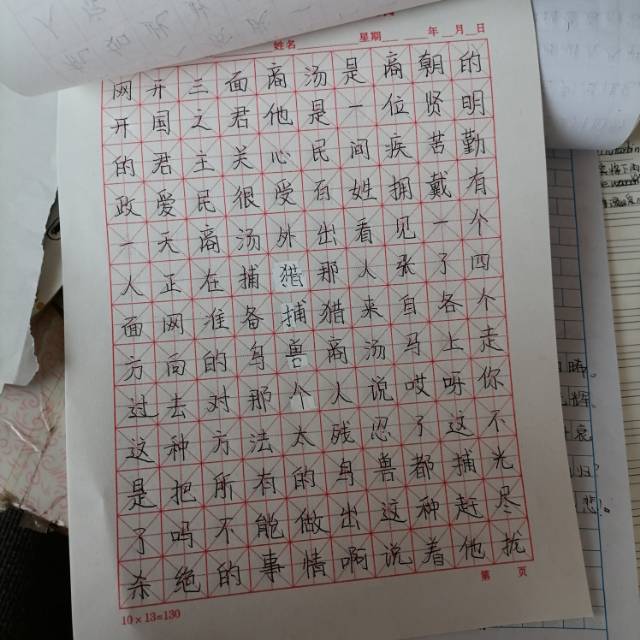 姓名 星期 年 月 日
网开三面商汤是商朝的
开国之君他是一位贤明
的君主关心民间疾苦勤
政爱民很受百姓拥戴有
一天商汤外出看见一个
人正在捕猎那人张了四
面网准备捕猎来自各个
方向的鸟兽商汤马上走
过去对那个人说哎呀你
这种方法太残忍了这不
是把所有的鸟兽都捕光
了吗不能做出这种赶尽
杀绝的事情啊说着他抚
第 页
10×13=130